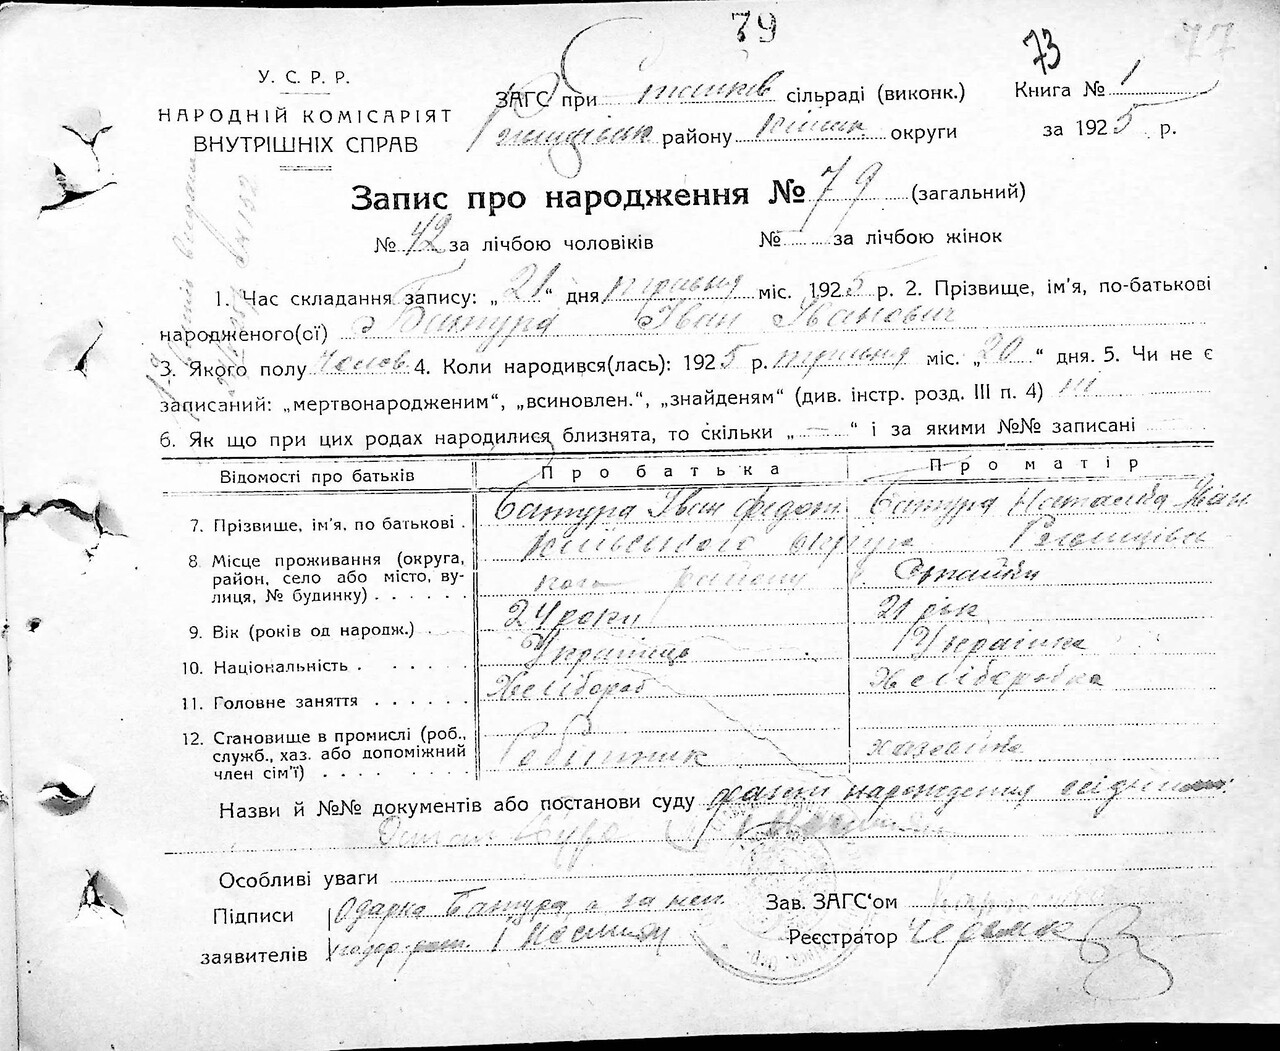 79
73
77
У. С. Р. Р.
НАРОДНІЙ КОМІСАРІЯТ
ВНУТРІШНІХ СПРАВ
ЗАГС при Стайків сільраді (виконк.)
Ржищівськ району Київськ округи
Книга № 1
за 1925 р.
Запис про народження № 79 (загальний)
№ 42 за лічбою чоловіків № за лічбою жінок
1. Час складання запису: „21“ дня травня міс. 1925 р. 2. Прізвище, ім'я, по-батькові
народженого(ої) Батура Іван Іванович
3. Якого полу чолов 4. Коли народився(лась): 1925 р. травня міс. „20“ дня. 5. Чи не є
записаний: „мертвонародженим“, „всиновлен.“, „знайденям“ (див. інстр. розд. III п. 4) ні
6. Як що при цих родах народилися близнята, то скільки „—“ і за якими №№ записані
Відомості про батьків Про батька Про матір
7. Прізвище, ім'я, по батькові . Батура Іван Федот Батура Наталка Іван
8 Місце проживання (округа, район, село або місто, вулиця, № будинку) . . . . . . Київського округа Ржищівського району Стайки
9. Вік (років од народж.) . 24 роки 21 рік
10. Національність . . . . . Українець Українка
11. Головне заняття . . . . . . Хлібороб Хліборобка
12. Становище в промислі (роб., служб., хаз. або допоміжний член сім'ї) . . . . . . Робітник хазяйка
Назви й №№ документів або постанови суду факт нарождения
Особливі уваги
Підписи
заявителів
Одарка Батура а за неї
Зав. ЗАГС'ом
Реєстратор